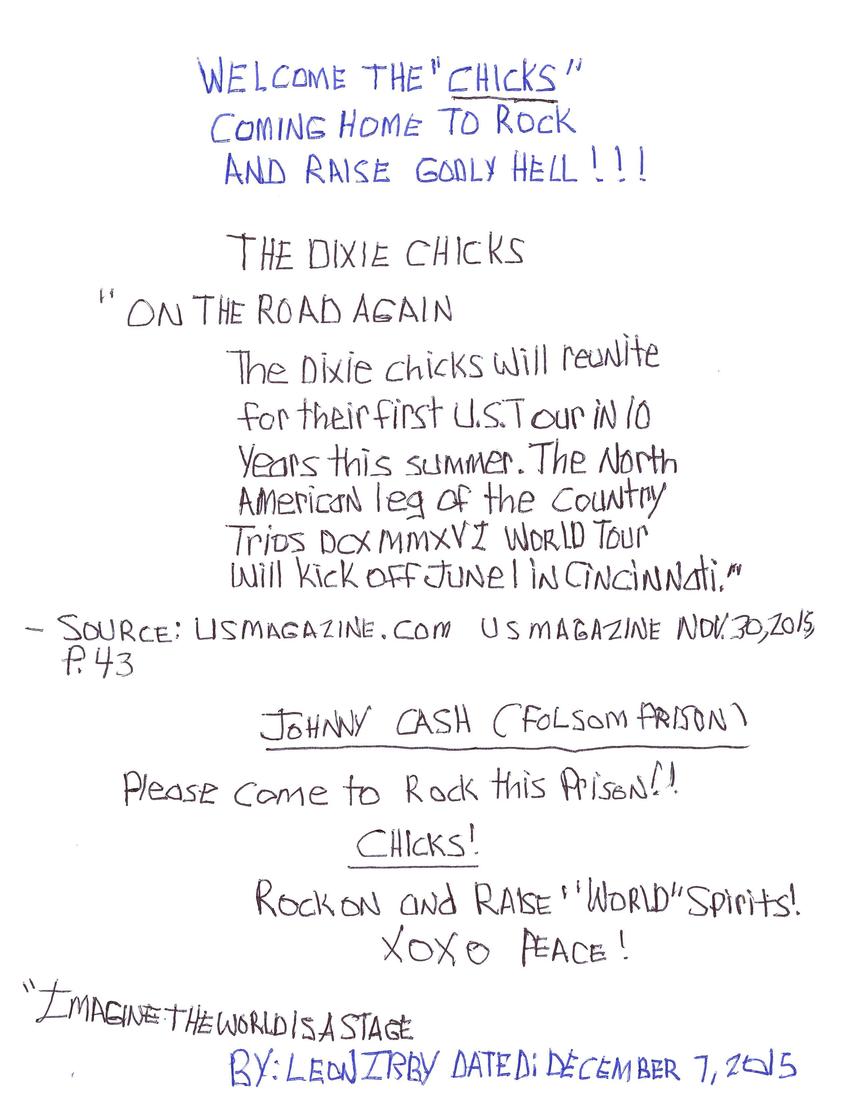 WELCOME THE "CHICKS"
COMING HOME TO ROCK
AND RAISE GODLY HELL!!!
THE DIXIE CHICKS
"ON THE ROAD AGAIN
The Dixie chicks will reunite
for their first U.S. Tour in 10
Years this summer. The North
American leg of the country
Trios DCX MMXVI WORLD TOUR
Will kick OFF JUNE 1 in CiNCiNNati."
- SOURCE: USMAGAZINE.COM US MAGAZINE NOV. 30, 2015,
P. 43
JOHNNY CASH (FOLSOM PRISON)
Please come to Rock this Prison!!
CHICKS!
ROCK ON and RAISE "WORLD" Spirits!
XOXO PEACE!
"IMAGINE THE WORLD IS A STAGE
BY: LEON IRBY DATED: DECEMBER 7, 2015